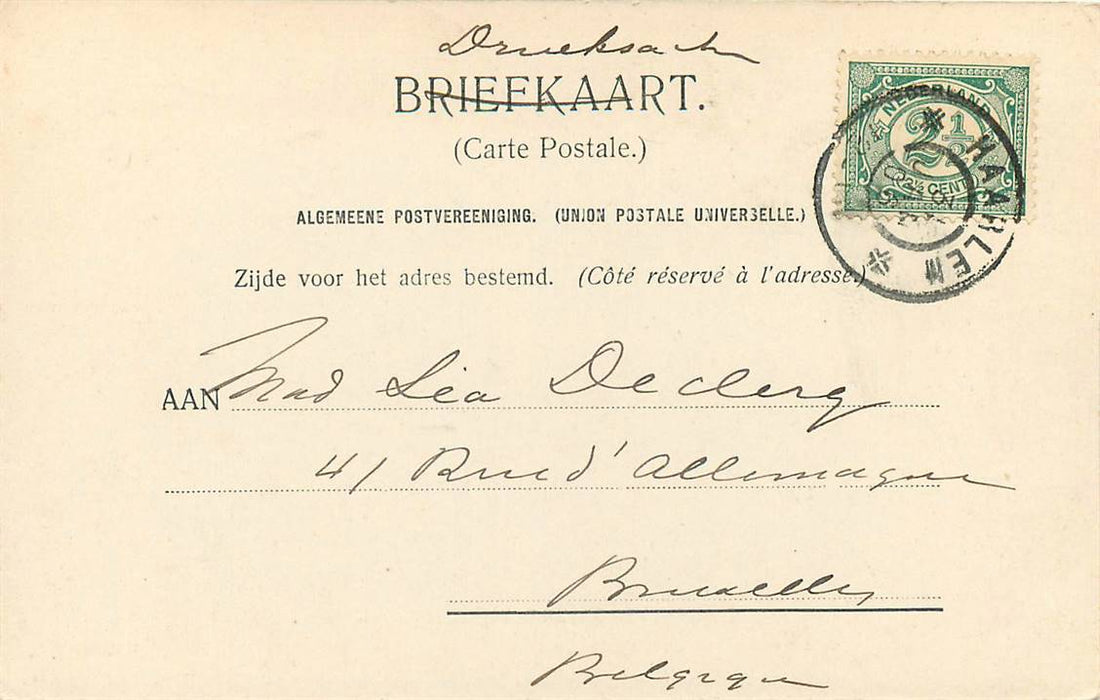 Drucksach
BRIEFKAART.
(Carte Postale.)
NEDERLAND
2 1/2
2½ CENT
HAARLEM
ALGEMEENE POSTVEREENIGING. (UNION POSTALE UNIVERSELLE.)
Zijde voor het adres bestemd. (Côté réservé à l'adresse.)
AAN Mad Léa Declerq
41 Rue d'Allemagne
Bruxelles
Belgique